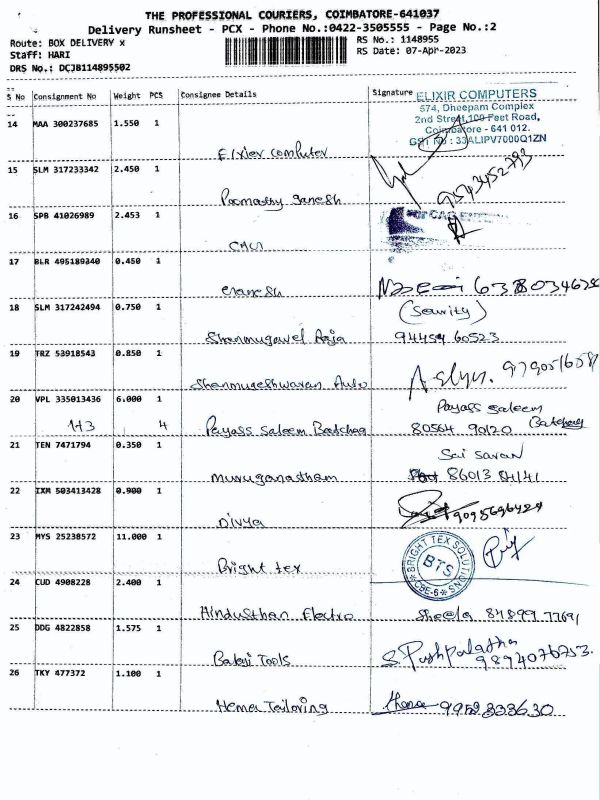 THE PROFESSIONAL COURIERS, COIMBATORE-641037
Delivery Runsheet - PCX - Phone No.:0422-3505555 - Page No.:2
Route: BOX DELIVERY x
RS No.: 1148955
Staff: HARI
RS Date: 07-Apr-2023
DRS No.: DCJB114895502
S No Consignment No Weight PCS Consignee Details Signature
ELIXIR COMPUTERS
574, Dheepam Complex
2nd Street, 100 Feet Road,
Coimbatore - 641 012.
GST No : 33ALIPV7000Q1ZN
14 MAA 300237685 1.550 1
Elxier computer
15 SLM 317233342 2.450 1
ganesh
16 SPB 41026989 2.453 1
17 BLR 495189340 0.450 1
(Security)
18 SLM 317242494 0.750 1
Shanmugavel Raja 94459 60523
19 TRZ 53918543 0.850 1
Shanmugeshwaran Auto
20 VPL 335013436 6.000 1
Payass Saleem
1+3 4 Payass Saleem Batcha 80564 90120 Batcha
21 TEN 7471794 0.350 1
Sai Saran
muruganadham 86013 84141
22 IXM 503413428 0.900 1
Divya 9095696424
23 MYS 25238572 11.000 1
BRIGHT TEX SOLUTIONS
BTS
CBE-6
Bright tex
24 CUD 4908228 2.400 1
Hindusthan Electro Sheela 84899 77691
25 DDG 4822858 1.575 1
S. Pushpalatha
Balaji Tools 9894076253.
26 TKY 477372 1.100 1
Hema Tailoring